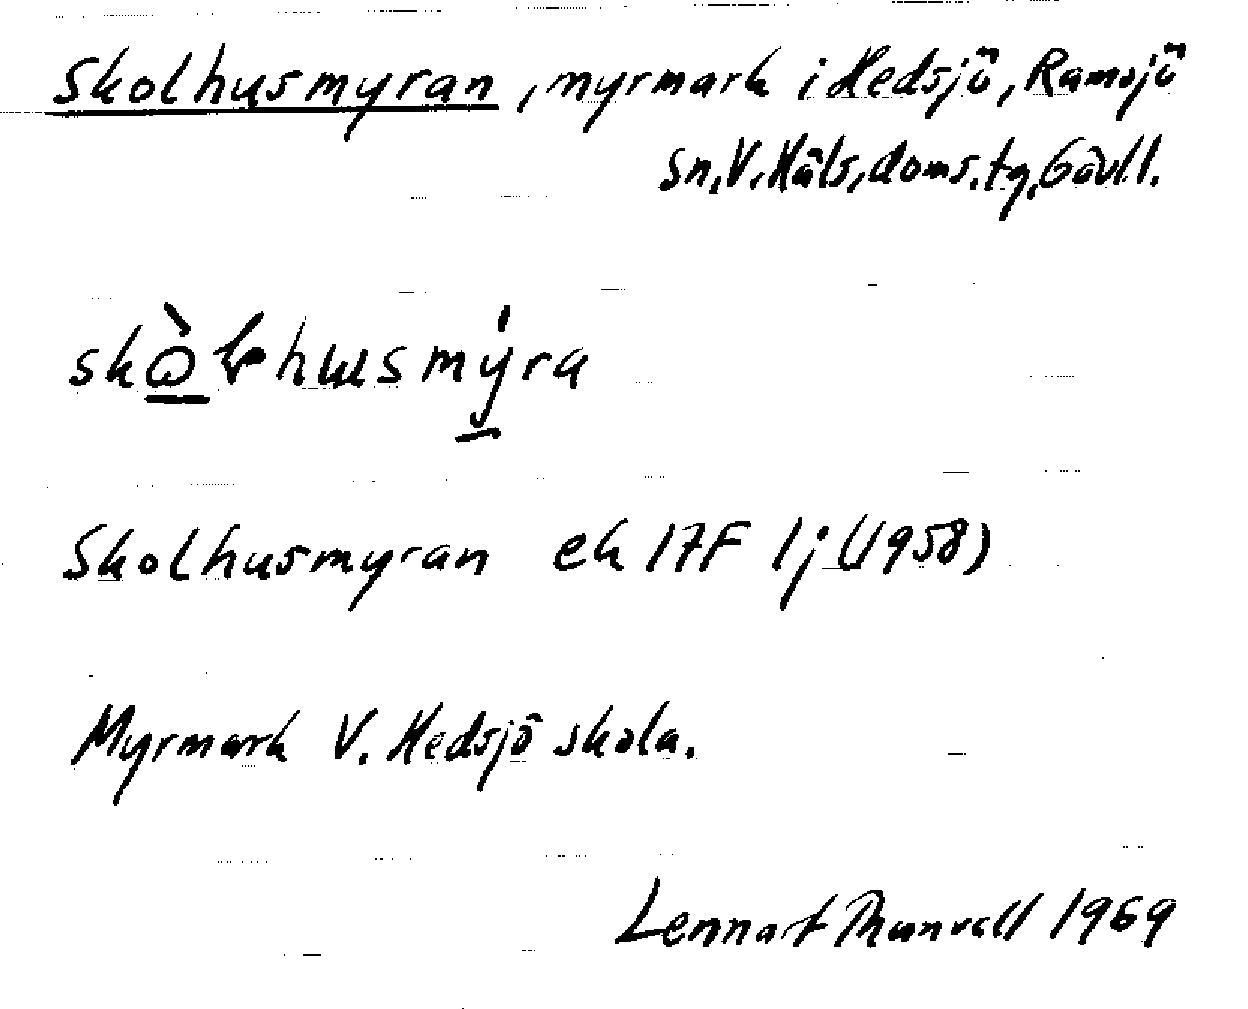 Skolhusmyran, myrmark i Hedsjö, Ramsjö
sn, V. Häls. doms. tg, Gävl l.
Skolhusmyran ek 17F 1j (1958)
Myrmark V. Hedsjö skola.
Lennart Thunvall 1969